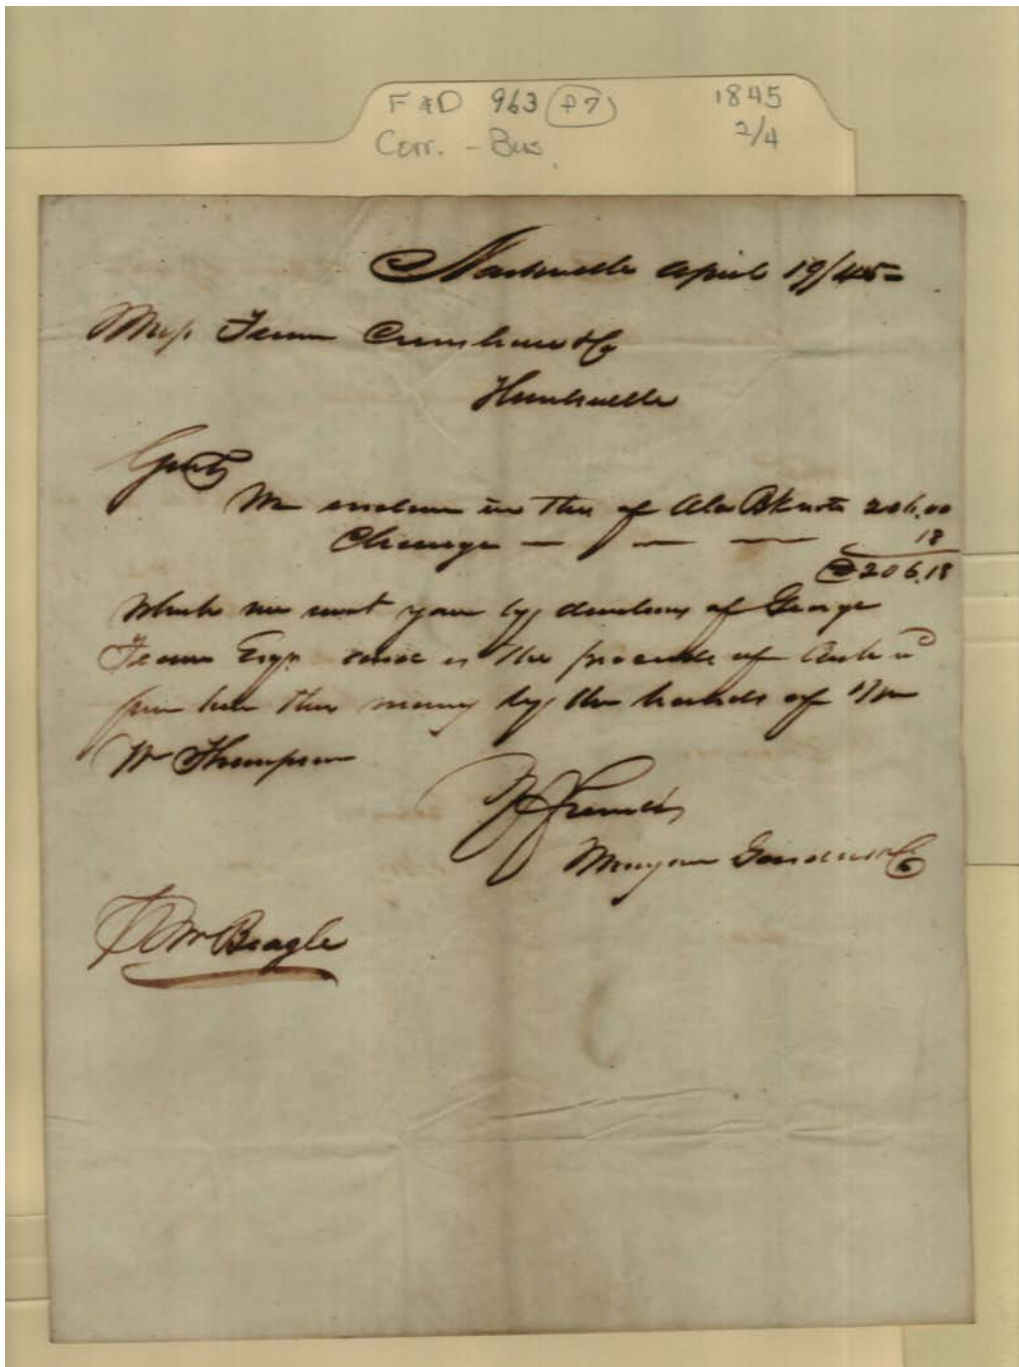 F & D 963 (f7) 1845
Corr. - Bus. 2/4
Nashville April 19/45
Mess Fearn Crenshaw & Co
Huntsville
Gents
We enclose in this of Ala Bk note 206.00
Change — — — 18
206.18
Which we sent you by directions of George
Fearn Esqr is the proceeds of
this money by the hands of
W Thompson
Friends
Morgan & Co
Beagle